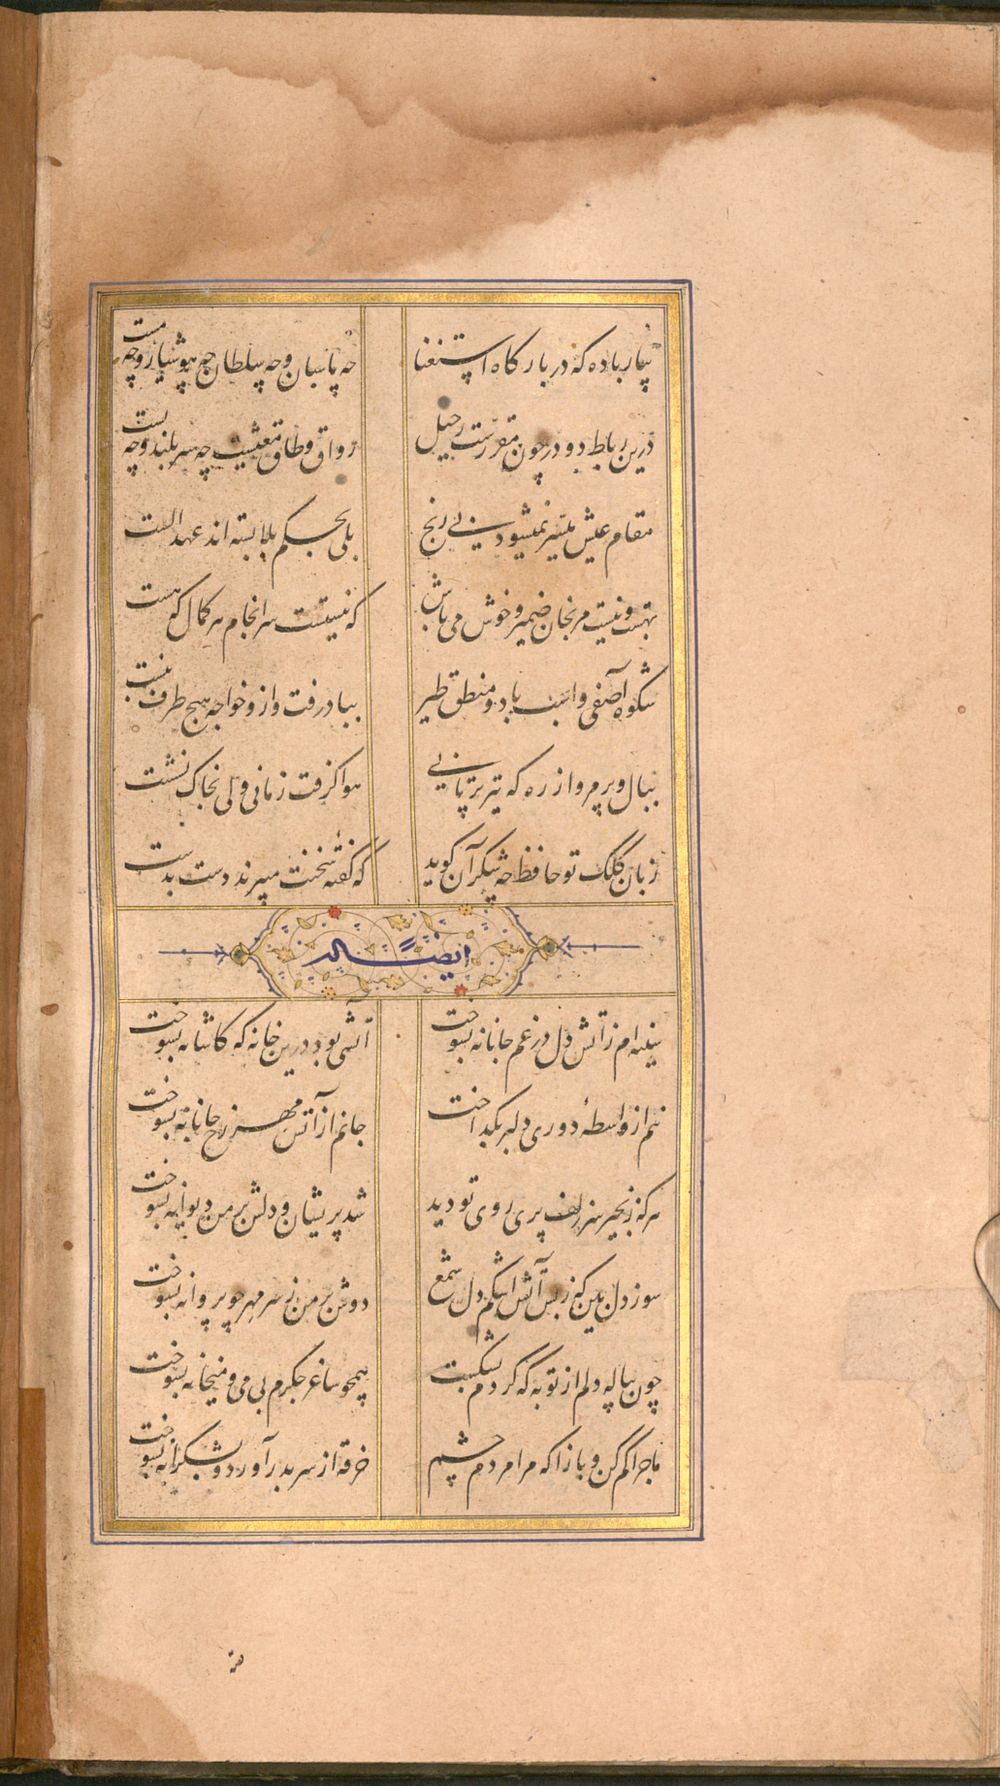 بیار باده که در بارکاه استغنا
چه پاسبان و چه سلطان چه هوشیار و چه مست
درین رباط دو در چون مقررست رحیل
رواق و طاق معیشت چه سربلند و چه پست
مقام عیش میسر نمیشود بی رنج
بلی بحکم بلا بسته اند عهد الست
بهست و نیست مرنجان ضمیر و خوش می باش
که نیستیست سرانجام هر کمال که هست
شکوه آصفی و اسب باد و منطق طیر
بباد رفت و ازو خواجه هیچ طرف نبست
ببال و پر مرو از ره که تیر پرتابی
هوا کرفت زمانی ولی بخاک نشست
زبان کلک تو حافظ چه شکر آن کوید
که کفتهٔ سخنت میبرند دست بدست
ایضاً له
سینه ام زآتش دل در غم جانانه بسوخت
آتشی بود درین خانه که کاشانه بسوخت
تنم از واسطهٔ دوری دلبر بکداخت
جانم از آتش مهر رخ جانانه بسوخت
هر که زنجیر سر زلف پری روی تو دید
شد پریشان و دلش بر من دیوانه بسوخت
سوز دل بین که ز بس آتش اشکم دل شمع
دوش بر من ز سر مهر چو پروانه بسوخت
چون پیاله دلم از توبه که کردم بشکست
همچو ساغر جکرم بی می و میخانه بسوخت
ماجرا کم کن و بازا که مرا مردم چشم
خرقه از سر بدر آورد و بشکرانه بسوخت